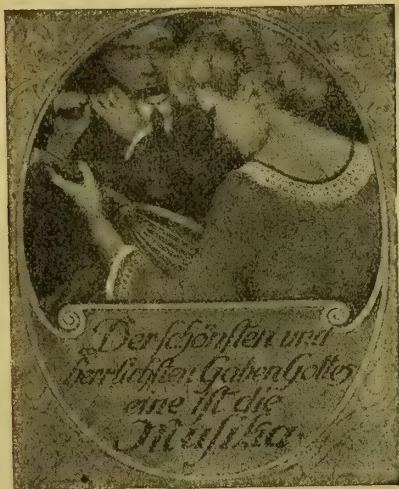 Der schönsten und
herrlichsten Gaben Gottes
eine ist die
Musika